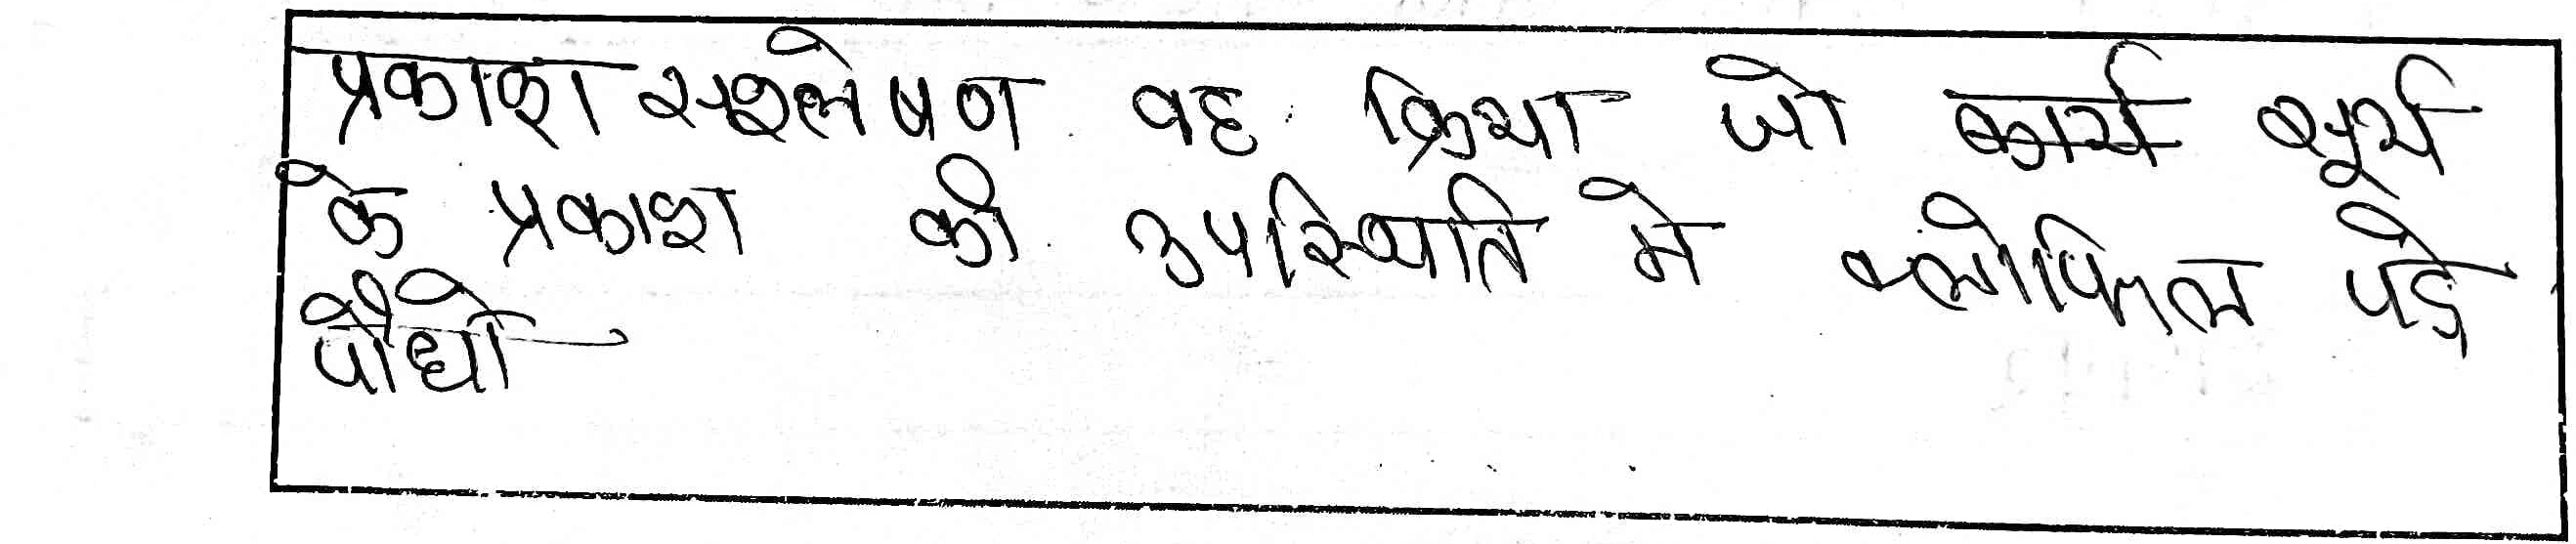 प्रकाश सश्लेषण वह क्रिया जो कार्य सूर्य
के प्रकाश की उपस्थिति मे क्लोफिल पेडे
पौधो